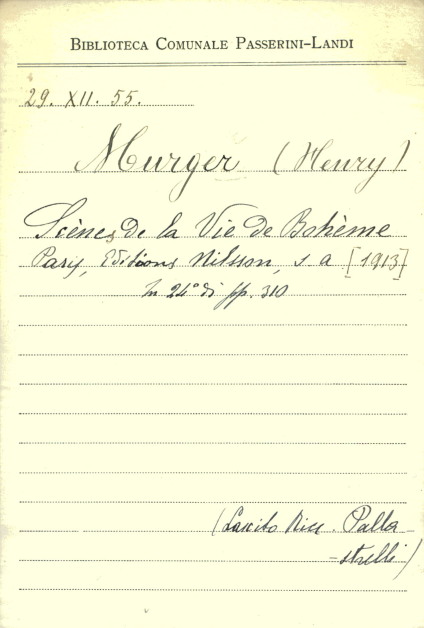 BIBLIOTECA COMUNALE PASSERINI-LANDI
29. XII. 55.
Murger (Henry)
Scènes de la Vie de Bohème
Paris, Editions Nilsson, s. a [1913]
In 24° di pp. 310
(Lascito Ricc. Palla-
-strelli)